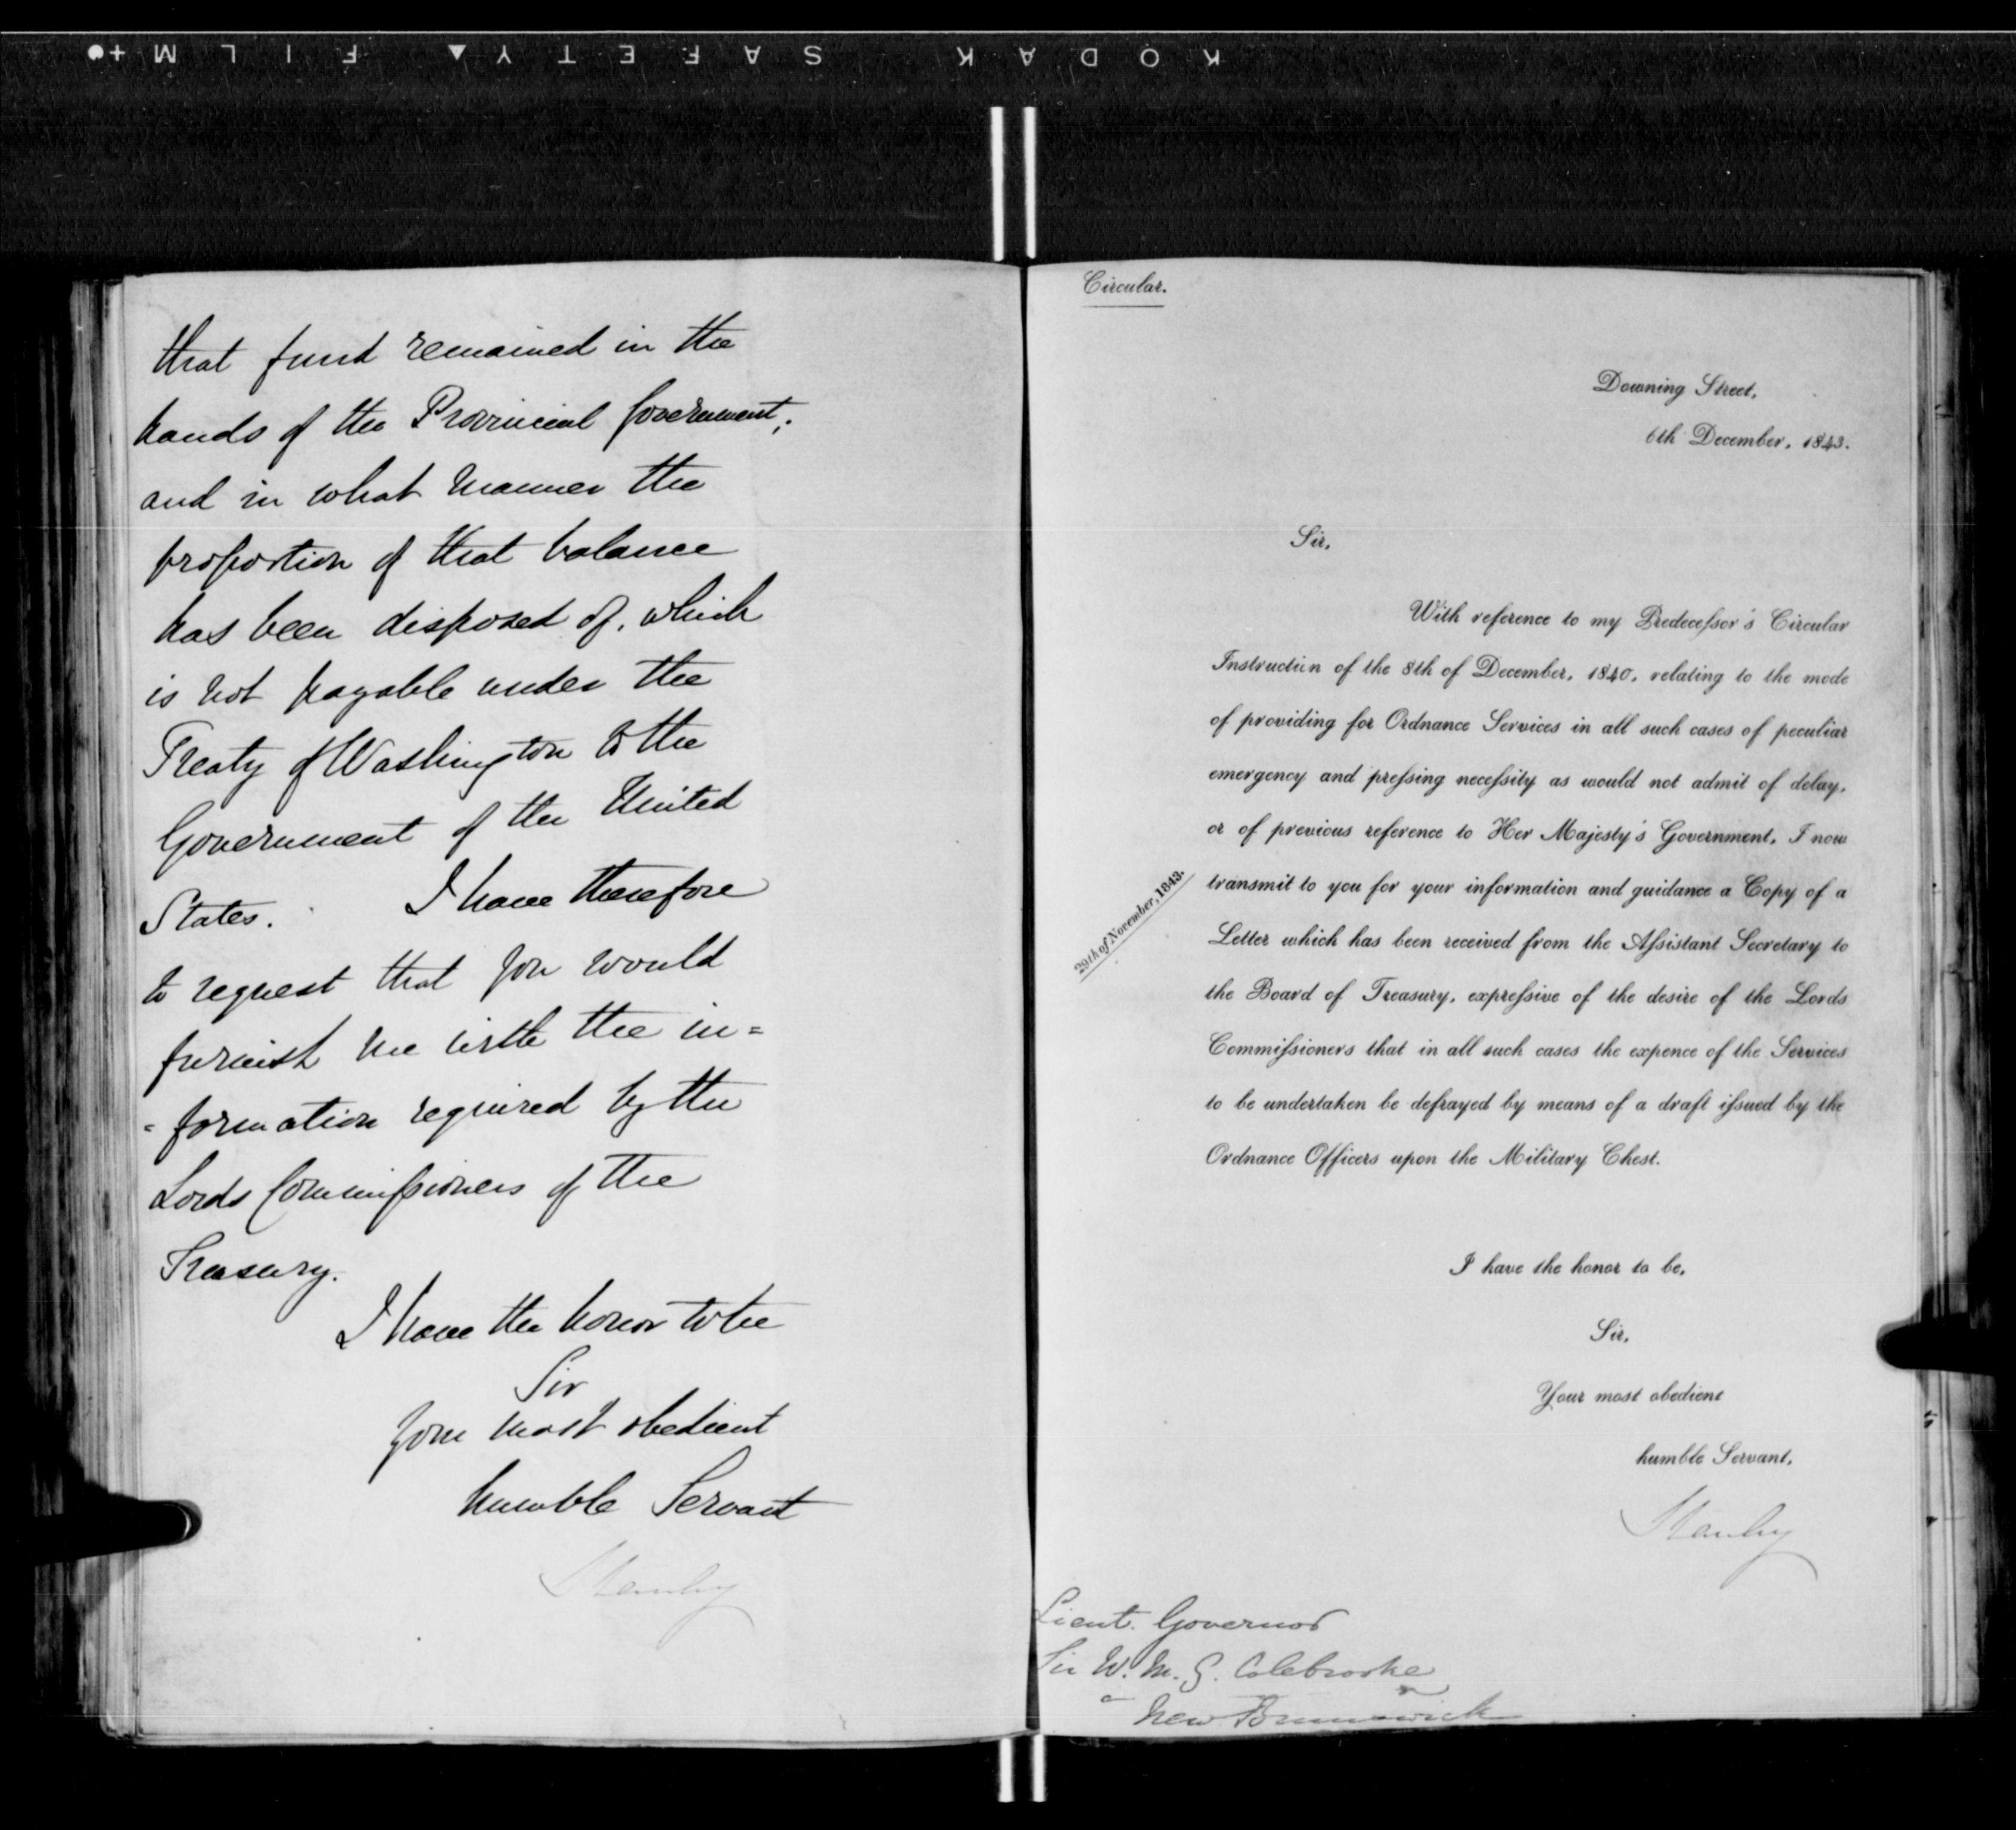 KODAK SAFETY FILM
that fund remained in the
hands of the Provincial Government;
and in what manner the
proportion of that balance
has been disposed of, which
is not payable under the
Treaty of Washington to the
Government of the United
States. I have therefore
to request that you would
furnish me with the in=
=formation required by the
Lords Commissioners of the
Treasury.
I have the honor to be
Sir
Your most obedient
humble Servant
Stanley
Circular.
Downing Street,
6th December, 1843.
Sir,
With reference to my Predecessor's Circular
Instruction of the 8th of December, 1840, relating to the mode
of providing for Ordnance Services in all such cases of peculiar
emergency and pressing necessity as would not admit of delay,
or of previous reference to Her Majesty's Government, I now
29th of November, 1843.
transmit to you for your information and guidance a Copy of a
Letter which has been received from the Assistant Secretary to
the Board of Treasury, expressive of the desire of the Lords
Commissioners that in all such cases the expence of the Services
to be undertaken be defrayed by means of a draft issued by the
Ordnance Officers upon the Military Chest.
I have the honor to be,
Sir,
Your most obedient
humble Servant,
Stanley
Lieut. Governor
Sir W. M. G. Colebrooke
New Brunswick